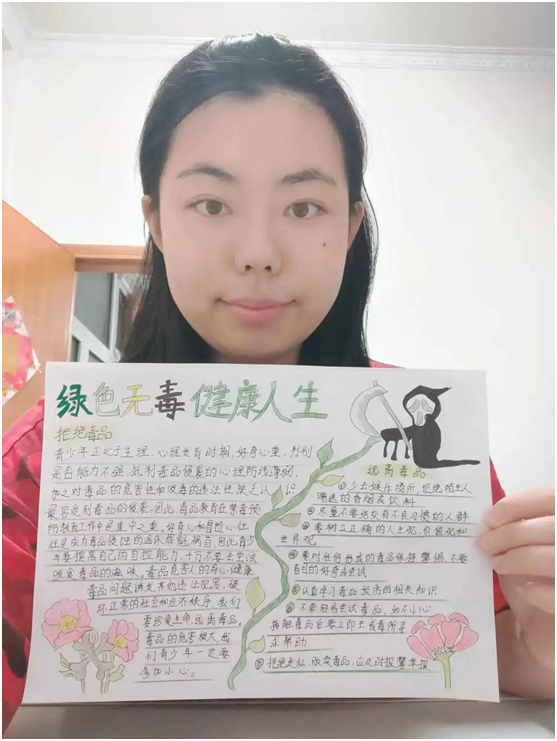 绿色无毒 健康人生
拒绝毒品
青少年正处于生理、心理发育时期,好奇心重,判别
是否能力不强,抵制毒品侵袭的心理防线薄弱,
加之对毒品的危害性和吸毒的违法性缺乏认识
最容易到毒品的侵袭。因此,毒品教育在禁毒预
防教育工作中是重中之重。好奇心和冒险心往
往是成为毒品侵蚀的温床,罪魁祸首,因此青少
年要提高自己的自控能力,千万不要去尝试
吸食毒品的滋味。毒品危害人的身心健康
毒品问题诱发其他违法犯罪,破
坏正常的社会和经济秩序,我们
要珍爱生命,远离毒品。
毒品的危害极大,我
们青少年一定要
多加小心。
远离毒品
①少去娱乐场所,拒绝陌生人
递送的香烟或饮料
②尽量不要结交有不良习惯的人群
③要树立正确的人生观,价值观和
世界观
④要对任何形式的毒品保持警惕,不要
自己的好奇与尝试
⑤认真学习毒品危害的相关知识
⑥不要轻易尝试毒品,如不小心
接触毒品后要立即去戒毒所寻
求帮助
⑦拒绝走私,贩卖毒品,应及时报警举报